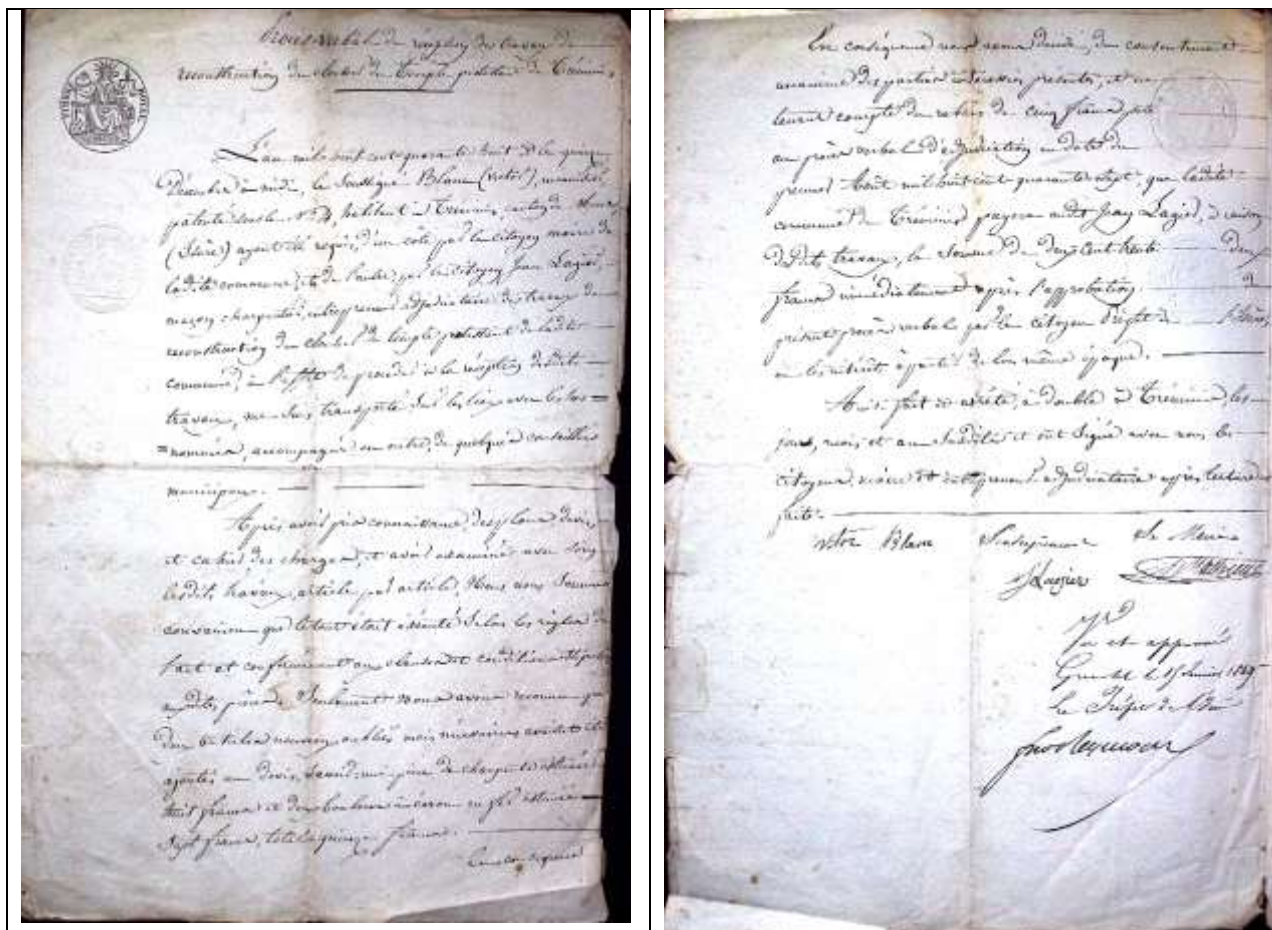 Procès verbal de réception des travaux de
reconstruction du clocher du Temple protestant de Tréminis
TIMBRE ROYAL
L'an mil huit cent quarante huit & le quinze
Décembre à midi, le Soussigné Blanc (Victor), 
patenté sous le N° 4, habitant à Tréminis, canton de Mens
(Isère) ayant été requis, d'un côté par le citoyen maire de
ladite commune, et de l'autre, par le citoyen Jean Lagier,
maçon charpentier, entrepreneur adjudicataire des travaux de
reconstruction du clocher du temple protestant de ladite
commune, à l'effet de procéder à la réception desdits
travaux, me suis transporté sur les lieux avec les sus
nommés, accompagné en outre, de quelques conseillers
municipaux.
Après avoir pris connaissance des plans devis
et cahier des charges, et avoir examiné avec soin
lesdits travaux, article par article, Nous nous sommes
convaincu que le tout était exécuté selon les règles de
l'art et conformément aux clauses et conditions
Seulement nous avons reconnu que
deux articles oubliés mais nécessaires avaient été
ajoutés au devis, savoir: une pièce de charpente estimée
huit francs et deux boulons en fer estimés
sept francs, total quinze francs.
En conséquence
En conséquence nous avons décidé, du consentement
unanime des parties intéressées présentes, et en
tenant compte du rabais de cinq francs
au procès verbal d'adjudication en date du
premier Août mil huit cent quarante sept, que ladite
commune de Tréminis payera audit Jean Lagier, à raison
desdits travaux, la somme de deux cent trente deux
francs immédiatement après l'approbation du
présent procès verbal par le citoyen Préfet de l'Isère,
ou les intérêts à partir de la même époque.
Ainsi fait et arrêté, à double à Tréminis, les
jour, mois et an susdits et ont signé avec nous les
citoyens maire et entrepreneur adjudicataire après lecture
faite.
Victor Blanc L'entrepreneur Le Maire
J Lagier
Vu et approuvé
Grenoble le 15 Janvier 1849
Le Préfet de l'Isère